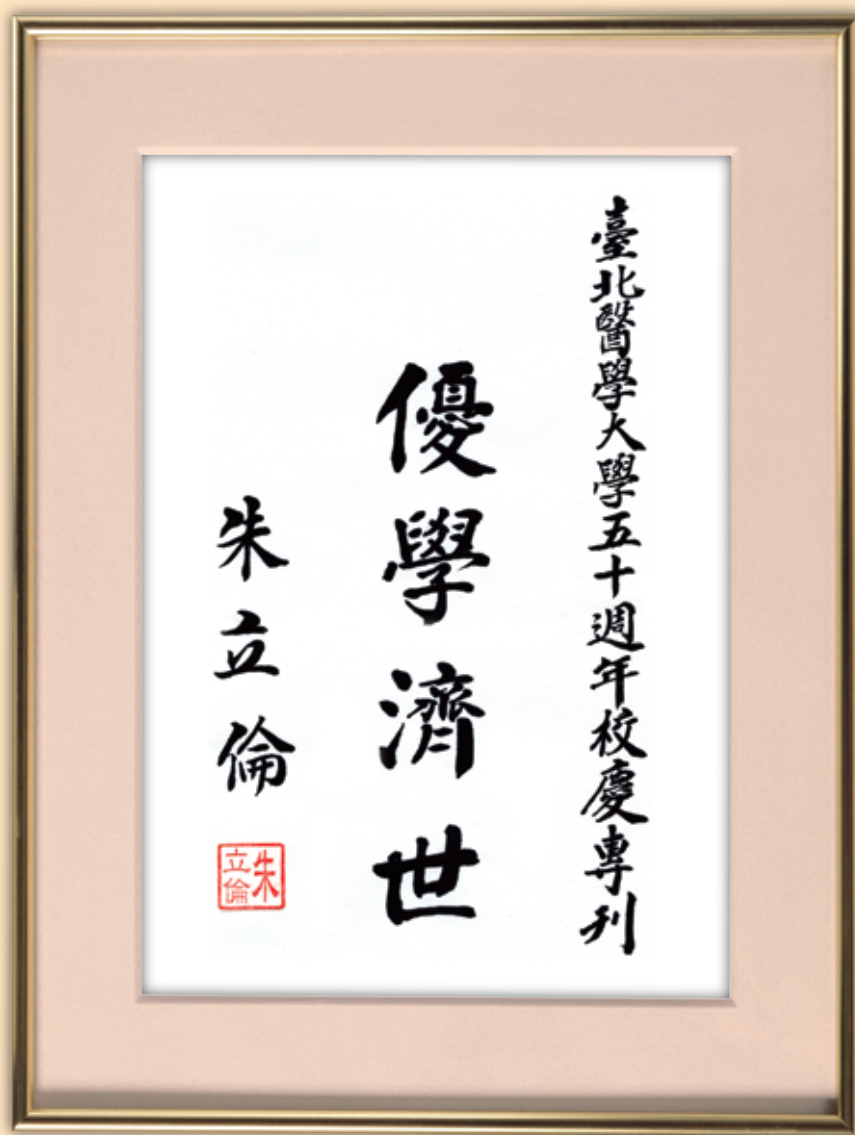 臺北醫學大學五十週年校慶專刊
優學濟世
朱立倫
朱立倫